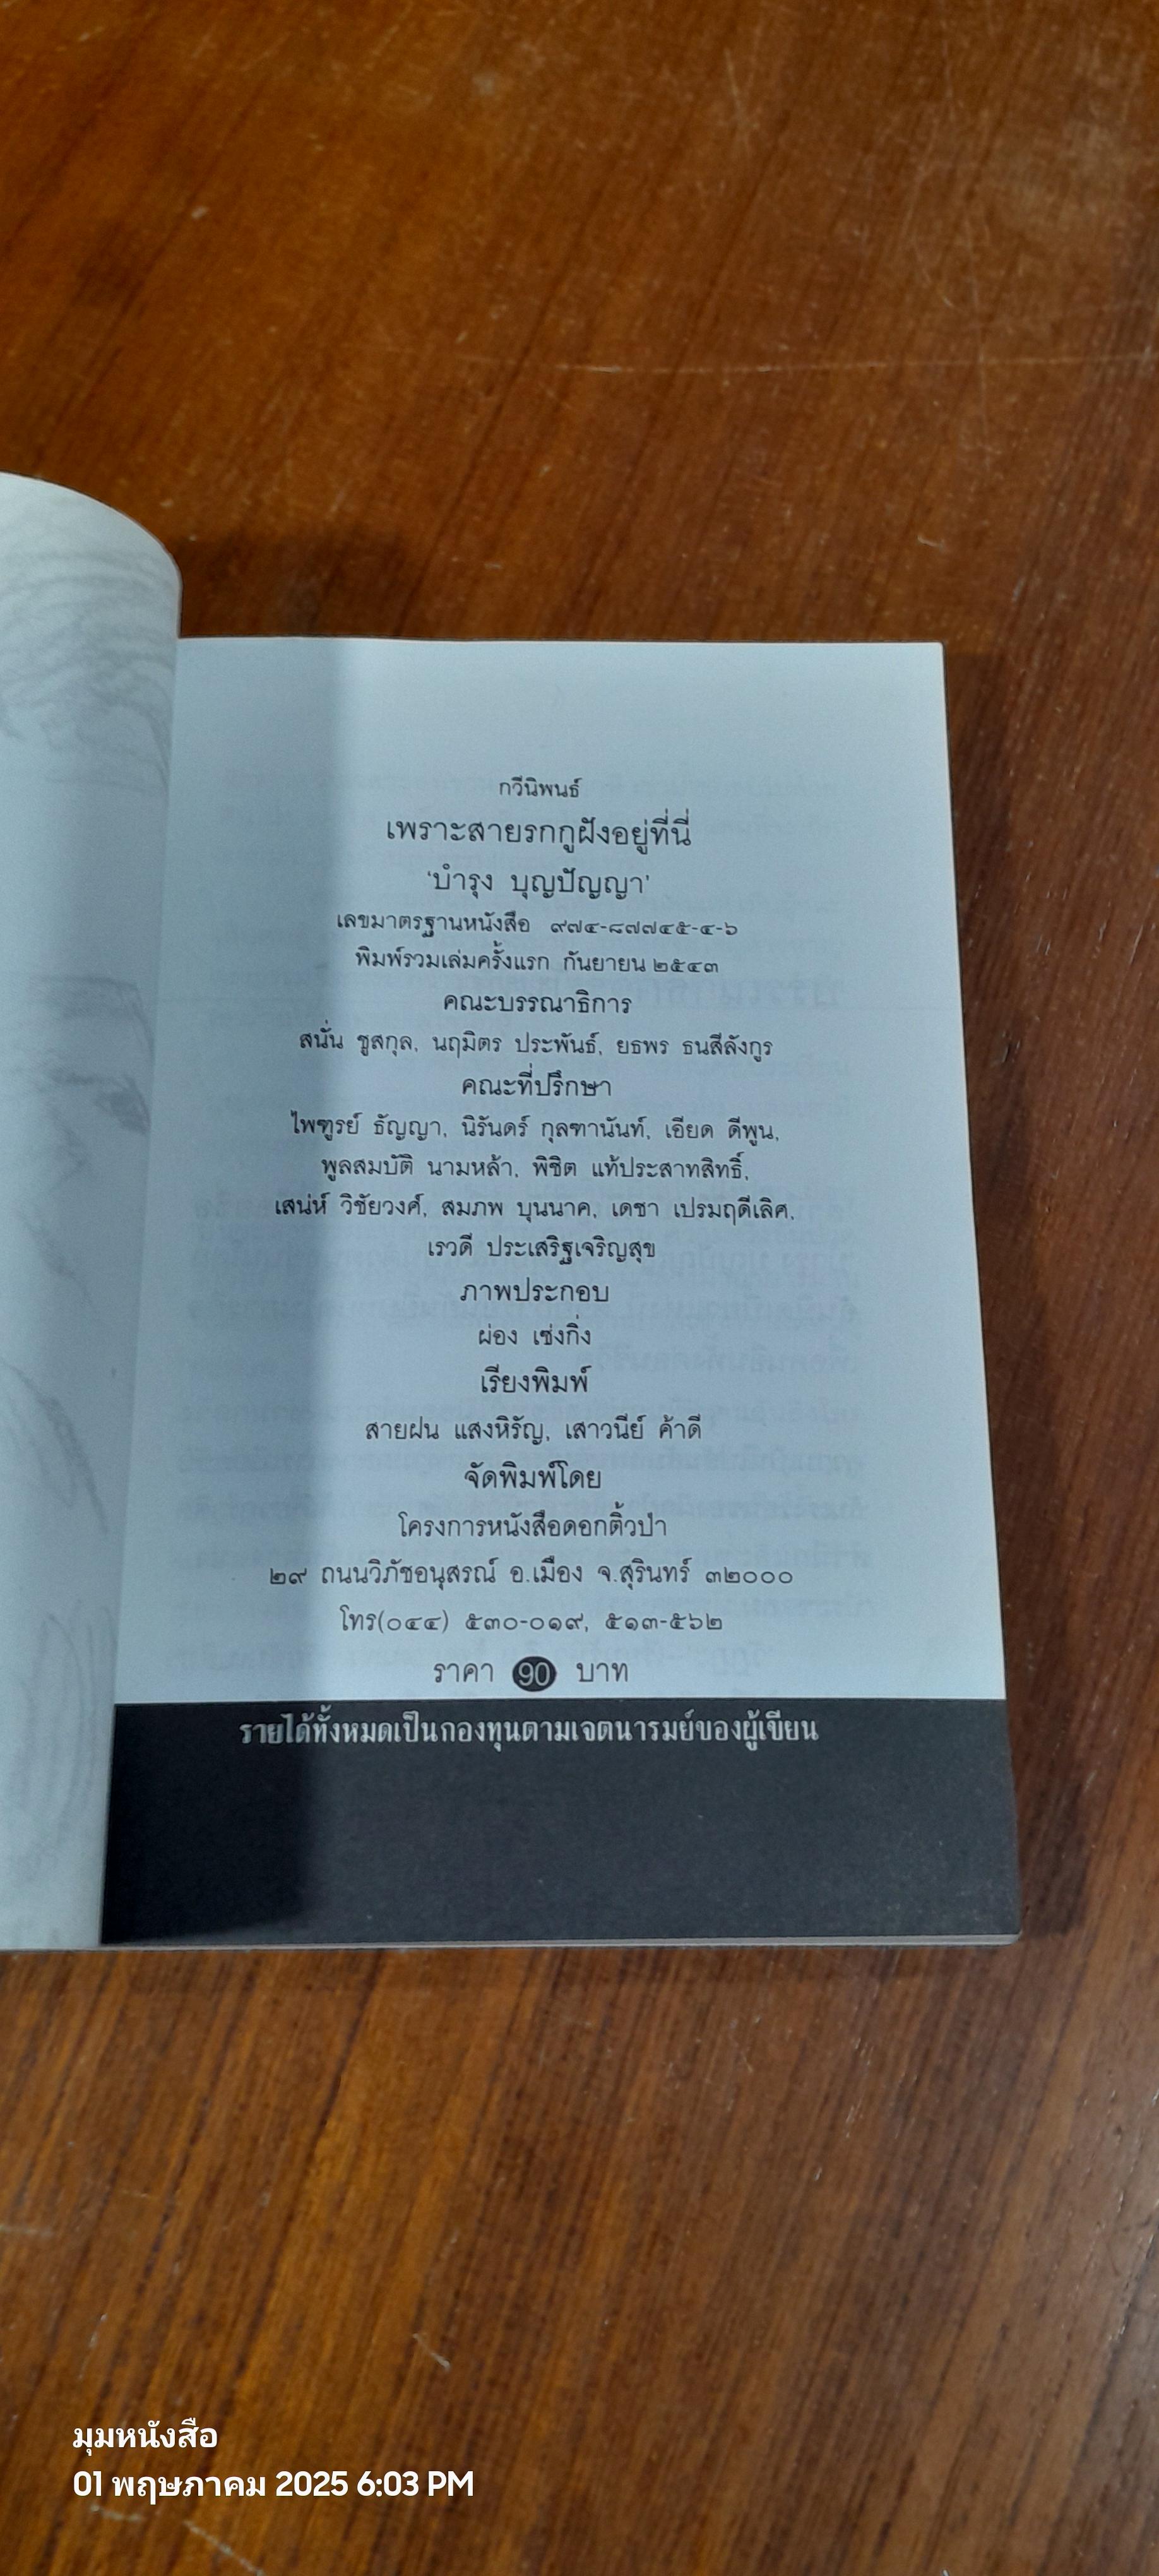 กวีนิพนธ์
เพราะสายรกกูฝังอยู่ที่นี่
'บำรุง บุญปัญญา'
เลขมาตรฐานหนังสือ ๙๗๔-๘๗๗๔๕-๔-๖
พิมพ์รวมเล่มครั้งแรก กันยายน ๒๕๔๓
คณะบรรณาธิการ
สนั่น ชูสกุล, นฤมิตร ประพันธ์, ยธพร ธนสีลังกูร
คณะที่ปรึกษา
ไพฑูรย์ ธัญญา, นิรันดร์ กุลฑานันท์, เอียด ดีพูน,
พูลสมบัติ นามหล้า, พิชิต แท้ประสาทสิทธิ์,
เสน่ห์ วิชัยวงศ์, สมภพ บุนนาค, เดชา เปรมฤดีเลิศ,
เรวดี ประเสริฐเจริญสุข
ภาพประกอบ
ผ่อง เซ่งกิ่ง
เรียงพิมพ์
สายฝน แสงหิรัญ, เสาวนีย์ ค้าดี
จัดพิมพ์โดย
โครงการหนังสือดอกติ้วป่า
๒๙ ถนนวิภัชอนุสรณ์ อ.เมือง จ.สุรินทร์ ๓๒๐๐๐
โทร(๐๔๔) ๕๓๐-๐๑๙, ๕๑๓-๕๖๒
ราคา 90 บาท
รายได้ทั้งหมดเป็นกองทุนตามเจตนารมย์ของผู้เขียน
มุมหนังสือ
01 พฤษภาคม 2025 6:03 PM